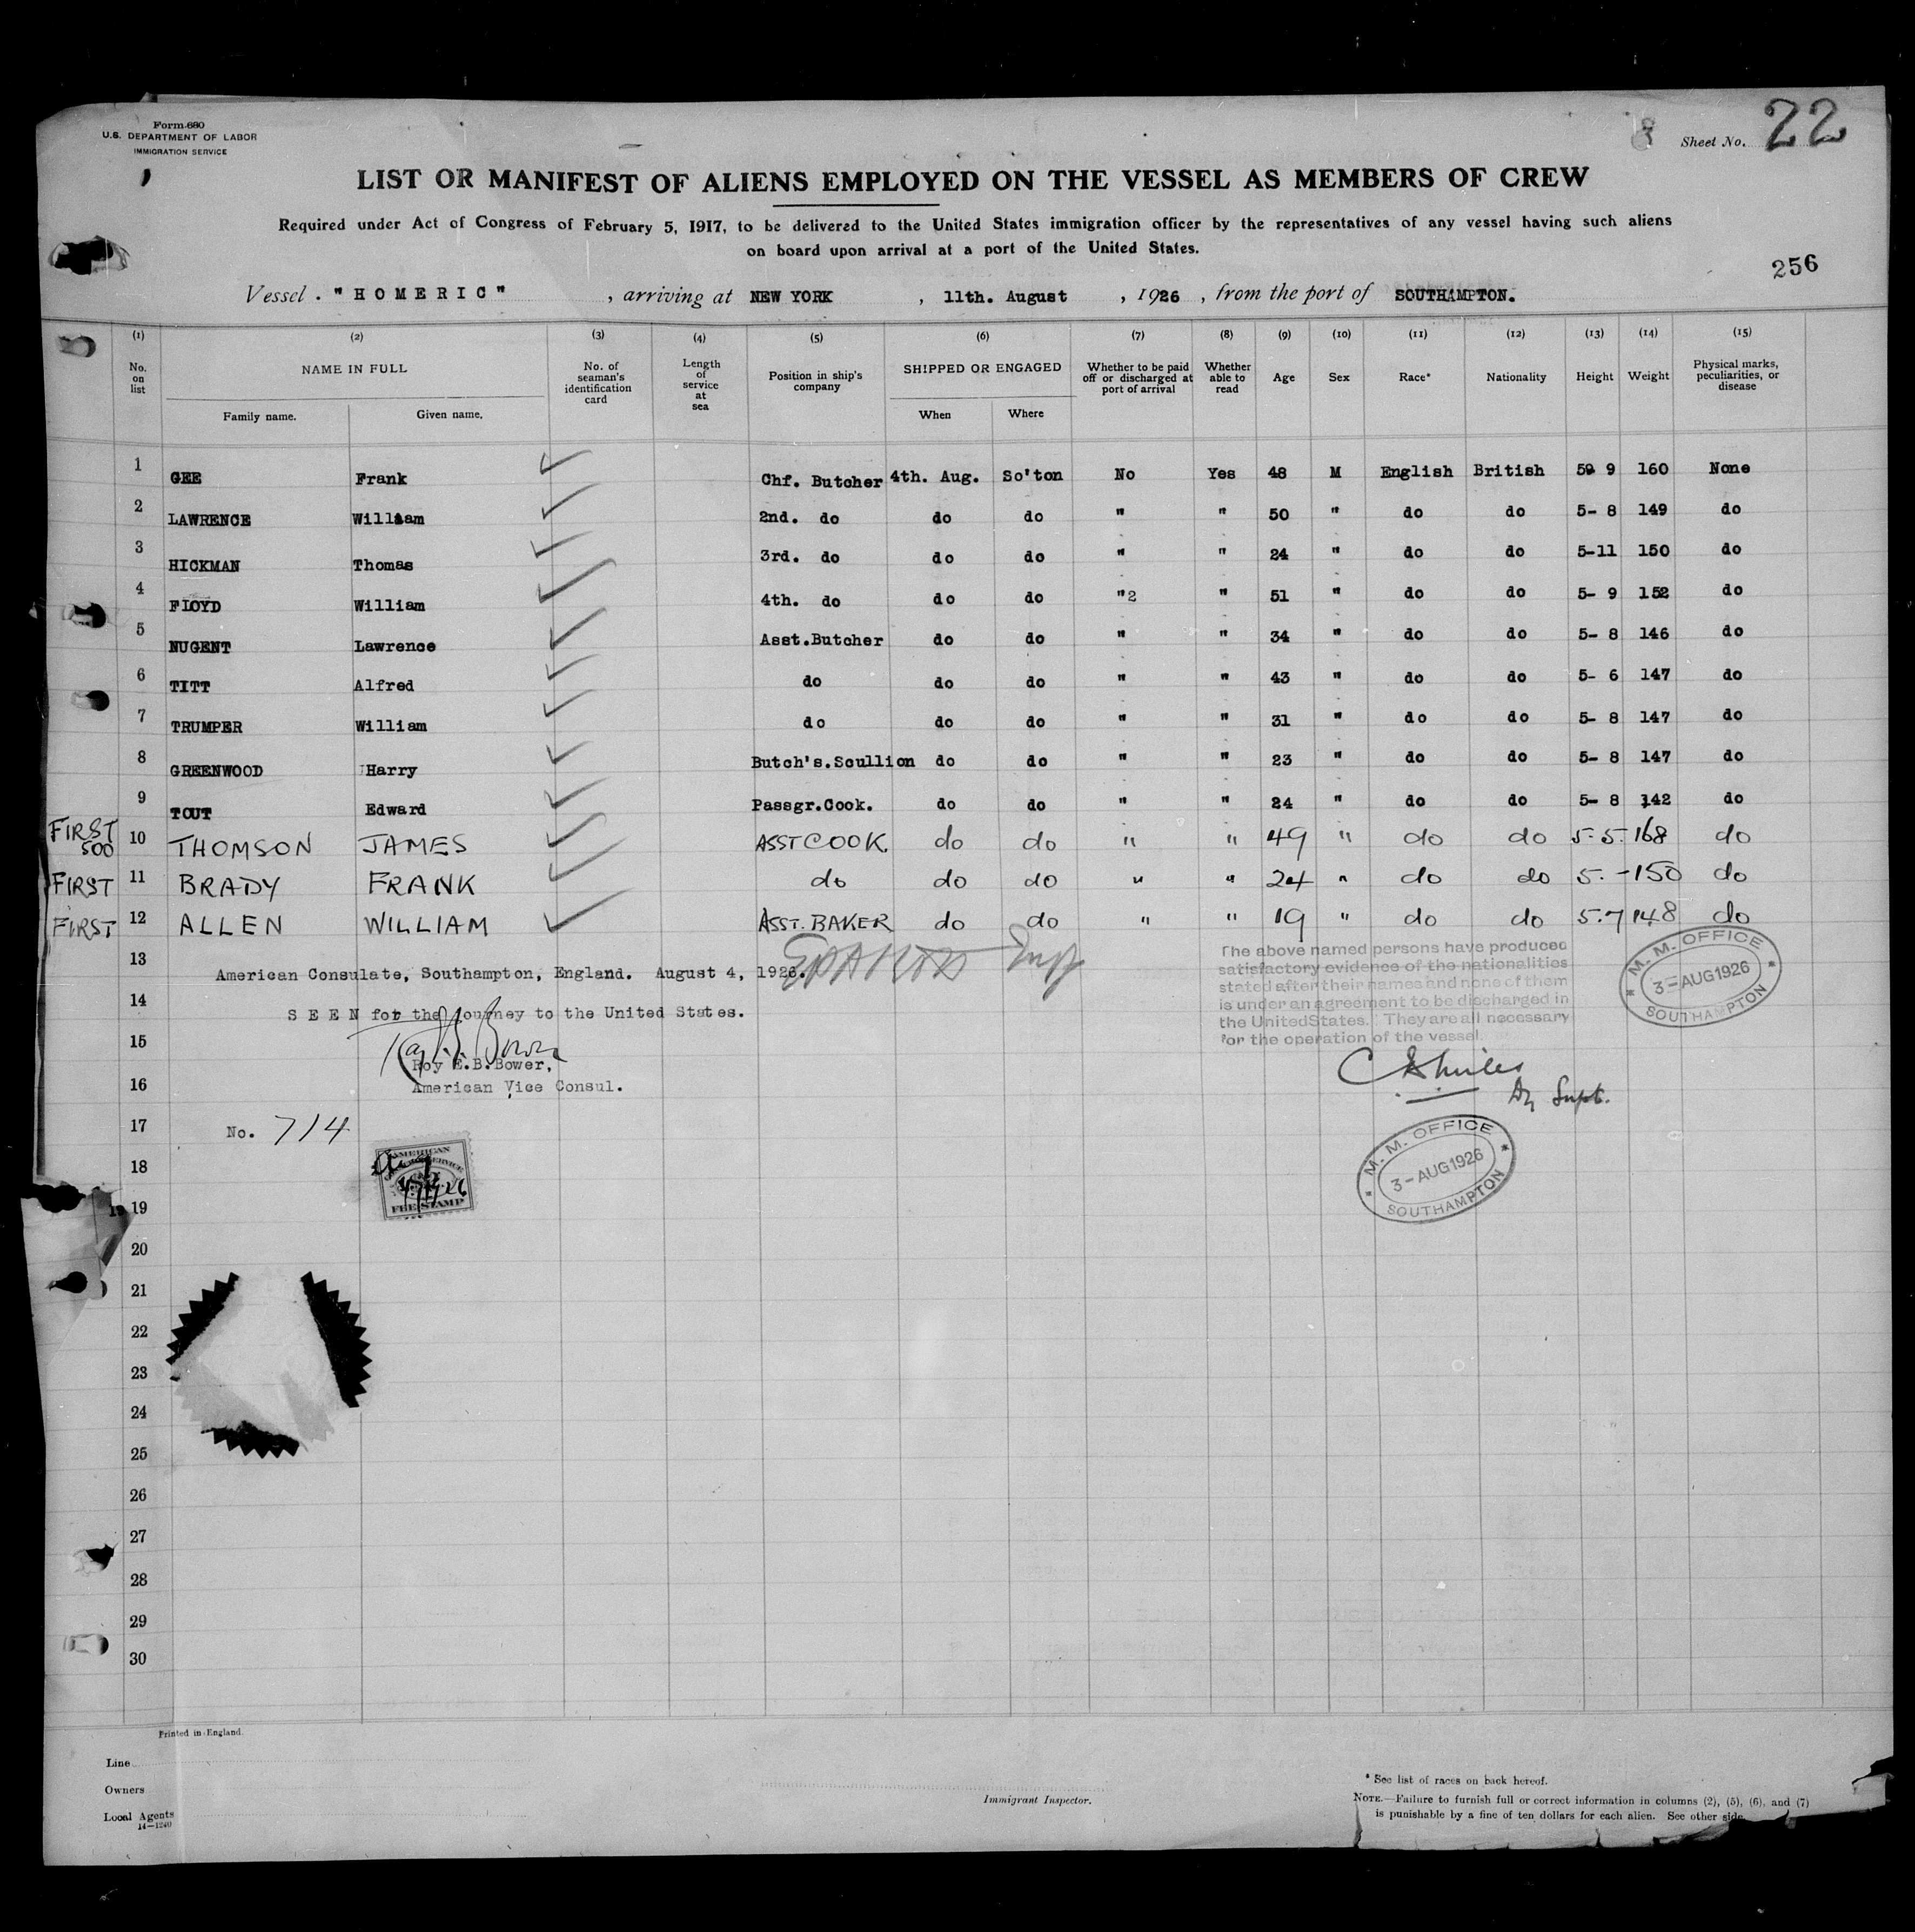 Form 680
U.S. DEPARTMENT OF LABOR
IMMIGRATION SERVICE
8 Sheet No. 22
LIST OR MANIFEST OF ALIENS EMPLOYED ON THE VESSEL AS MEMBERS OF CREW
Required under Act of Congress of February 5, 1917, to be delivered to the United States immigration officer by the representatives of any vessel having such aliens
on board upon arrival at a port of the United States.
256
Vessel . "HOMERIC" , arriving at NEW YORK , 11th. August , 1926 , from the port of SOUTHAMPTON.
(1) (2) (3) (4) (5) (6) (7) (8) (9) (10) (11) (12) (13) (14) (15)
No. on list NAME IN FULL No. of seaman's identification card Length of service at sea Position in ship's company SHIPPED OR ENGAGED Whether to be paid off or discharged at port of arrival Whether able to read Age Sex Race* Nationality Height Weight Physical marks, peculiarities, or disease
Family name. Given name. When Where
1 GEE Frank Chf. Butcher 4th. Aug. So'ton No Yes 48 M English British 59 9 160 None
2 LAWRENCE William 2nd. do do do " " 50 " do do 5- 8 149 do
3 HICKMAN Thomas 3rd. do do do " " 24 " do do 5-11 150 do
4 FLOYD William 4th. do do do "2 " 51 " do do 5- 9 152 do
5 NUGENT Lawrence Asst.Butcher do do " " 34 " do do 5- 8 146 do
6 TITT Alfred do do do " " 43 " do do 5- 6 147 do
7 TRUMPER William do do do " " 31 " do do 5- 8 147 do
8 GREENWOOD Harry Butch's.Scullion do do " " 23 " do do 5- 8 147 do
9 TOUT Edward Passgr.Cook. do do " " 24 " do do 5- 8 142 do
FIRST 500 10 THOMSON JAMES ASST COOK. do do " " 49 " do do 5-5. 168 do
FIRST 11 BRADY FRANK do do do " " 24 " do do 5.- 150 do
FIRST 12 ALLEN WILLIAM ASST. BAKER do do " " 19 " do do 5.7 148 do
13
American Consulate, Southampton, England. August 4, 1926.
14
SEEN for the journey to the United States.
15
Roy E.B.Bower,
16
American Vice Consul.
The above named persons have produced
satisfactory evidence of the nationalities
stated after their names and none of them
is under an agreement to be discharged in
the United States. They are all necessary
for the operation of the vessel.
M. M. OFFICE
3-AUG 1926
SOUTHAMPTON
Dy Supt.
17 No. 714
M. M. OFFICE
3-AUG 1926
SOUTHAMPTON
18
AMERICAN
SERVICE
FEE STAMP
19
20
21
22
23
24
25
26
27
28
29
30
Printed in England.
Line
Owners
Local Agents
14-1240
Immigrant Inspector.
* See list of races on back hereof.
NOTE.—Failure to furnish full or correct information in columns (2), (5), (6), and (7)
is punishable by a fine of ten dollars for each alien. See other side.